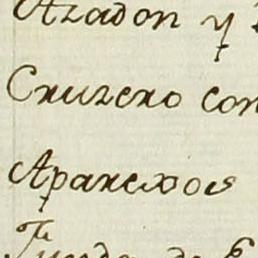 Azadon y
Cruzero con
Aparexos